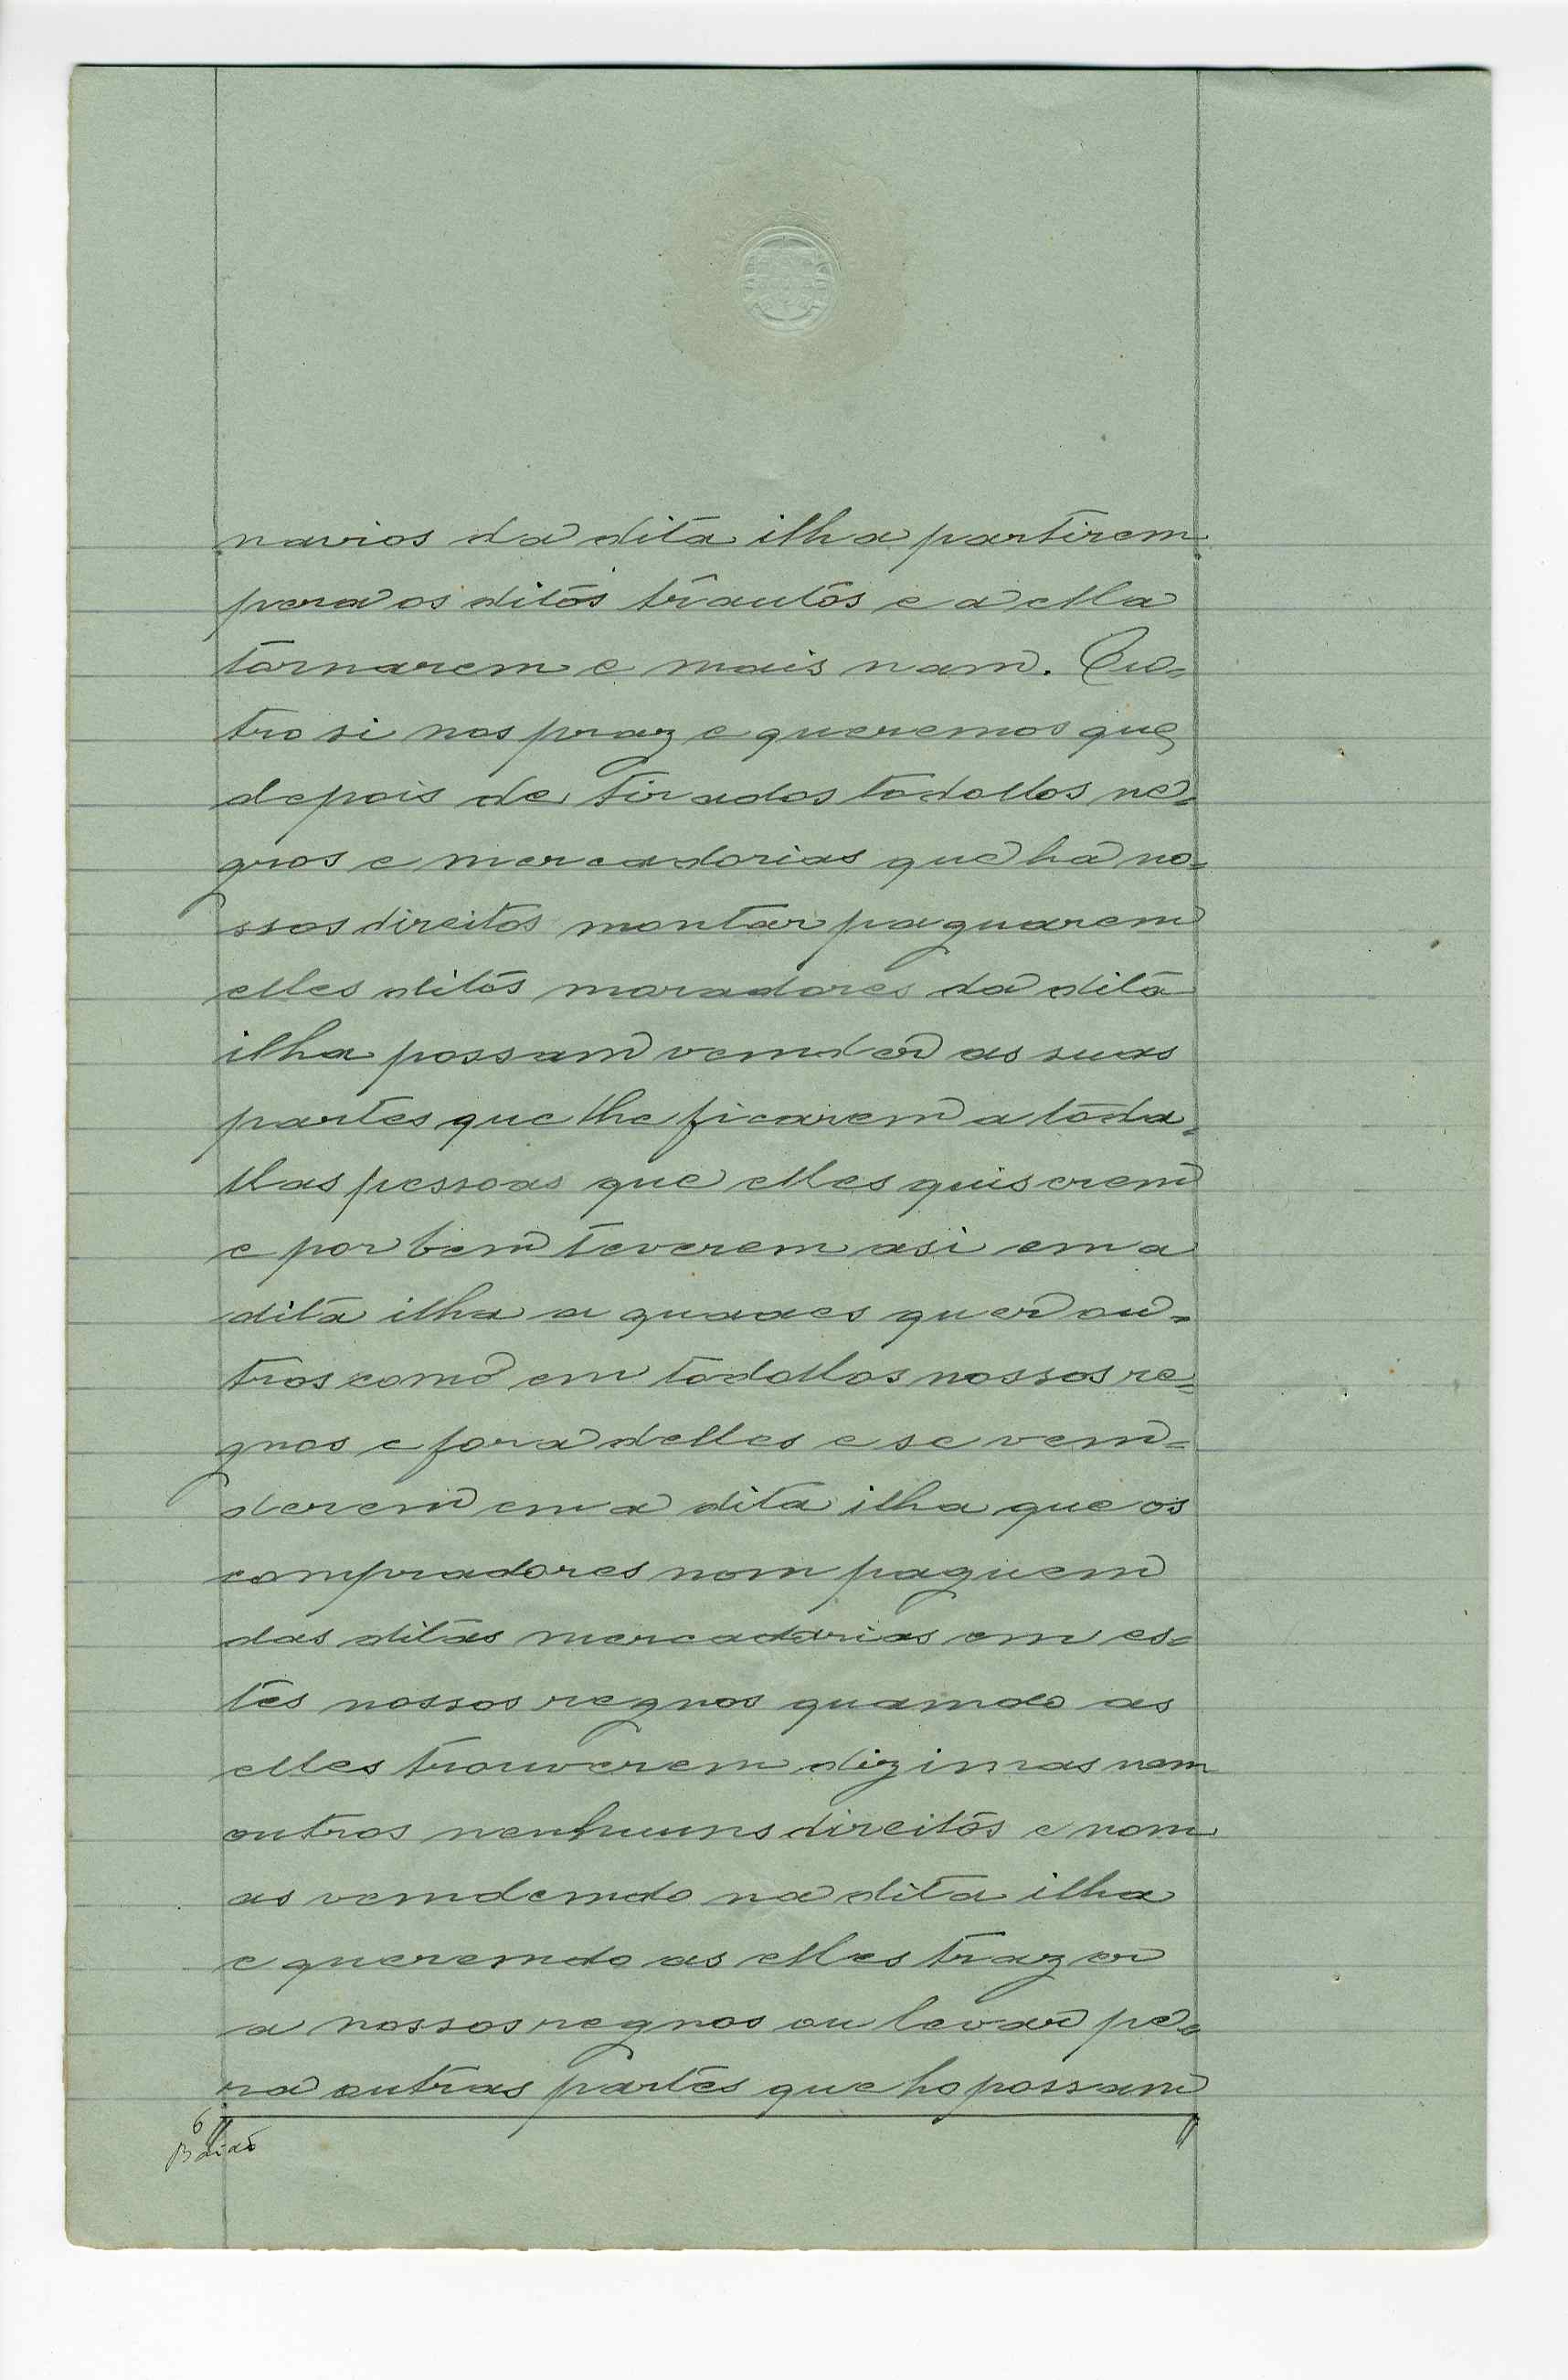 navios da dita ilha partirem
pera os ditos trautos e a ella
tornarem e mais nam. Ou-
tro si nos praz e queremos que
depois de tirados todollos ne-
gros e mercadorias que ha no-
ssos direitos montar paguarem
elles ditos moradores da dita
ilha possam vemder as suas
partes que lhe ficarem a toda-
llas pessoas que elles quiserem
e por bem teverem asi em a
dita ilha a quaaes quer ou-
tros como em todollos nossos re-
gnos e fora delles e se vem-
derem em a dita ilha que os
compradores nom paguem
das ditas mercadorias em es-
tes nossos regnos quamdo as
elles trouverem dizimas nem
outros nenhuuns direitos e nom
as vemdemdo na dita ilha
e queremdo as elles trazer
a nossos regnos ou levar pe-
ra outras partes que ho possam
6
Baião